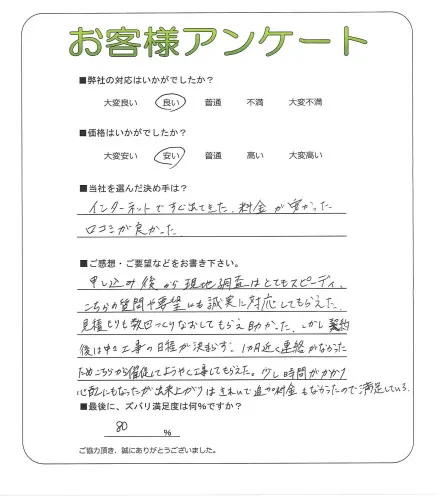 お客様アンケート
■弊社の対応はいかがでしたか？
大変良い 良い 普通 不満 大変不満
■価格はいかがでしたか？
大変安い 安い 普通 高い 大変高い
■当社を選んだ決め手は？
インターネットですぐ出てきた、料金が安かった
口コミが良かった
■ご感想・ご要望などをお書き下さい。
申し込み後から現地調査はとてもスピーディ、
こちらの質問や要望にも誠実に対応してもらえた、
見積もりも数回つくりなおしてもらえ助かった、しかし契約
後は中々工事の日程が決まらず、1カ月近く連絡がなかった
ためこちらから催促してようやく工事してもらえた。少し時間がかかり
心配にもなったが出来上がりはきれいで追加料金もなかったので満足している。
■最後に、ズバリ満足度は何％ですか？
80 ％
ご協力頂き、誠にありがとうございました。